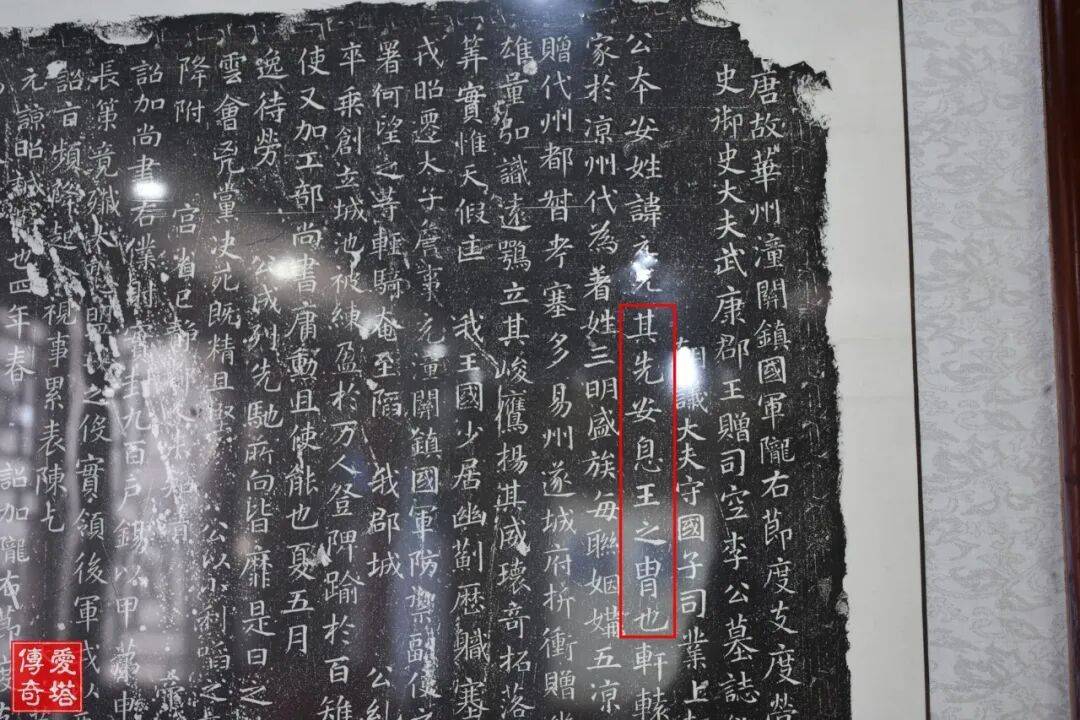 唐故華州潼關鎮國軍隴右節度支度營
史御史大夫武康郡王贈司空李公墓誌
議大夫守國子司業上
公本安姓諱元其先安息王之胄也軒轅
家於涼州代為著姓三明盛族每聯姻媾五涼
贈代州都督考塞多易州遂城府折衝贈
雄量弘識遠鶚立其峻鷹揚其威瓌奇拓落
筭實惟天假 我王國少居幽薊歷職塞
戎昭遷太子詹事充潼關鎮國軍防禦副使
署何望之等輕騎奄至陷我郡城 公
卒乘創立城池被練盈於万人登陴踰於百雉
使又加工部尚書庸勳且使能也夏五月
逸待勞 公成列先馳所向皆靡是日之
雲會兇黨决死既精且堅 公以小利䧟之
降附 宮省已靜都人未知 
詔加尚書右僕射實封九百戶錫以甲第申
長第竟殱 之後實領後軍戎
詔旨頻降起視事累表陳乞
元諒昭誠也四年春 詔加隴右節度
愛塔傳奇